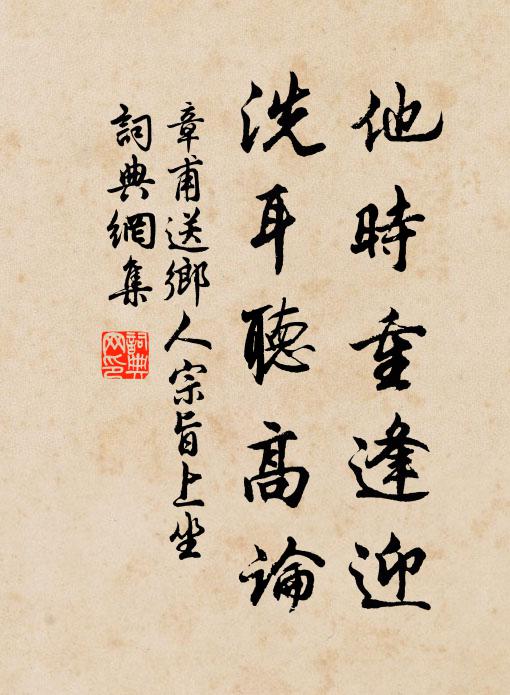 他時重逢迎
洗耳聽高論
章甫送鄉人宗旨上坐
詞典網集
詞典網印